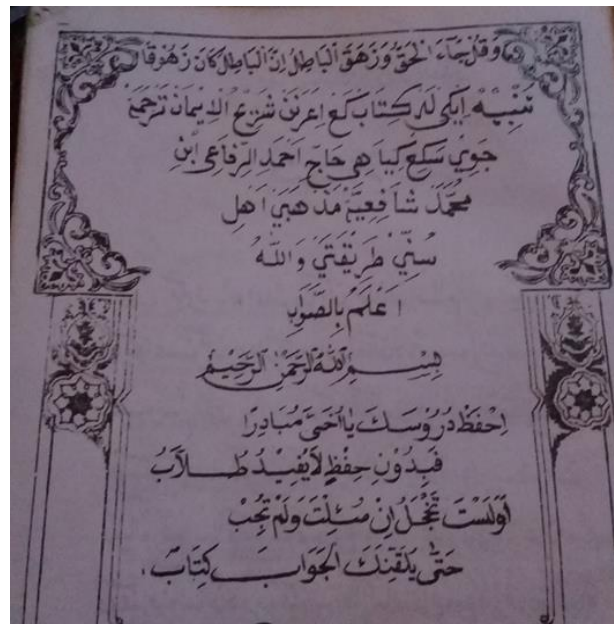 وَقُلْ جَاءَ الْحَقُّ وَزَهَقَ الْبَاطِلُ اِنَّ الْبَاطِلَ كَانَ زَهُوْقًا
تَنْبِيْهٌ اِيْكِيْ لَهْ كِتَابْ كَڠْ اِڠَرَنَنْ شَرِيْحُ الْاِيْمَانْ تَرْجَمَهْ
جَوِيْ سَكِڠْ كِيَاهِيْ حَاجِّ اَحْمَدِ الرِّفَاعِى اِبْنِ
مُحَمَّدْ شَافِعِيَّهْ مَذْهَبَيْ اَهْلِ
سُنِّيْ طَرِيْقَتَيْ وَاللّٰهُ
اَعْلَمُ بِالصَّوَابِ
بِسْمِ اللّٰهِ الرَّحْمٰنِ الرَّحِيْمِ
اِحْفَظْ دُرُوْسَكَ يَا اُخَيَّ مُبَادِرًا
فَبِدُوْنِ حِفْظٍ لَا يُفِيْدُ طِلَابُ
اَوَلَسْتَ تَخْجَلُ اِنْ سُئِلْتَ وَلَمْ تُجِبْ
حَتّٰى يُلَقِّنَكَ الْجَوَابَ كِتَابُ.